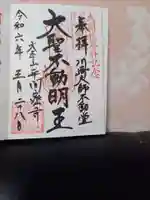 奉拝
川崎大師不動堂
大聖不動明王
大本山平間寺
令和六年五月二十八日